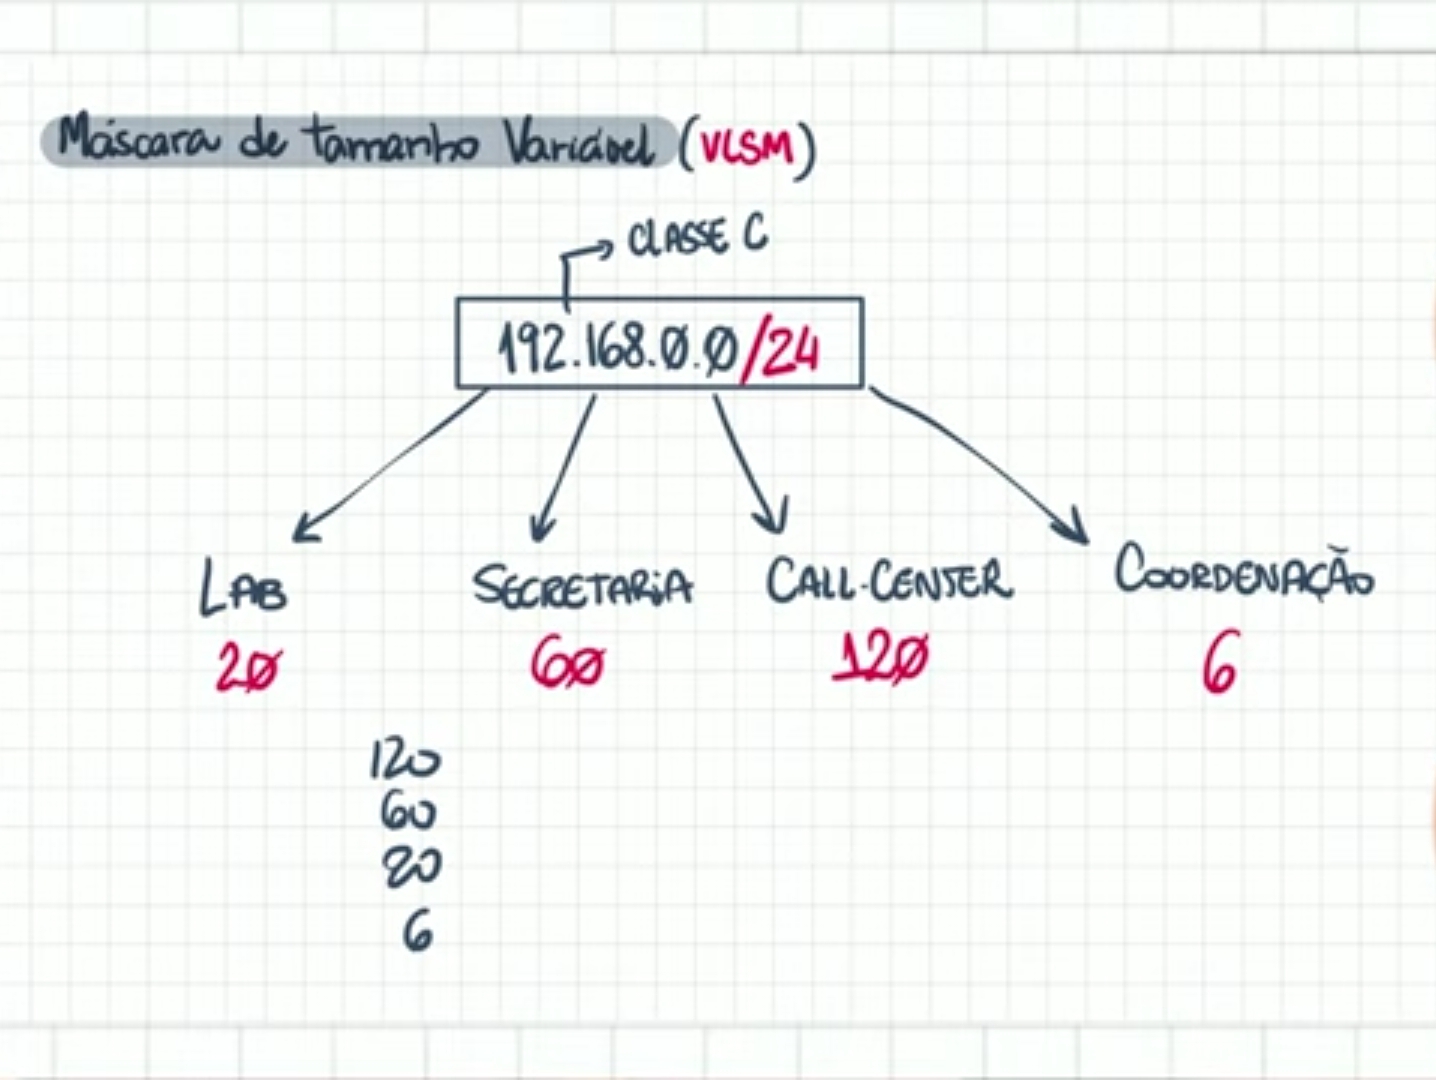 Máscara de tamanho Variável (VLSM)
CLASSE C
192.168.0.0/24
LAB SECRETARIA CALL-CENTER COORDENAÇÃO
20 60 120 6
120
60
20
6